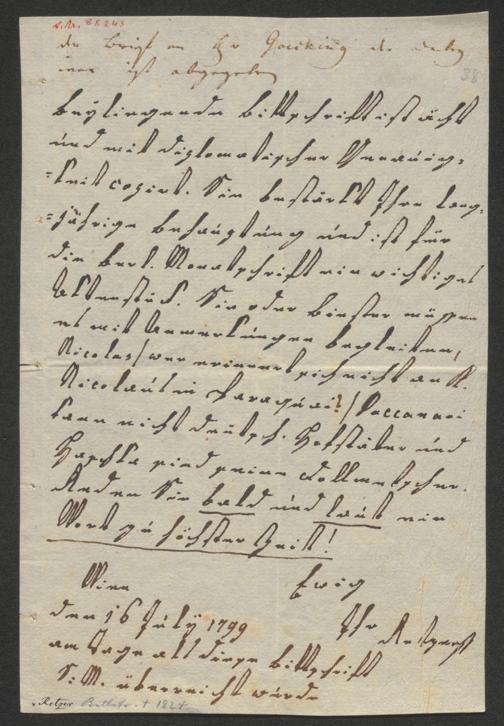 A.N. 88243
der Brief an Hr Göcking
ist abgegeben
38
Beyliegende Bittschrift ist ächt
und mit diplomatischer Genauig=
=keit copirt. Sie bestärkt Ihre lang=
=jährige Behauptung und ist für
die berl. Monatschrift ein wichtiges
Aktenstück. Sie oder Biester müssen
es mit Anmerkungen begleiten,
Nicolas/wer erinnert sich nicht an K.
Nicolaus in Paraquai!/ Paccanari
kann nicht deutsch. Hofstäter und
Haschka sind seine Dollmetscher.
Reden Sie bald und laut ein
Wort zu höchster Zeit!
Wien
Ewig
den 16 July 1799
Ihr
am Tage als diese Bittschrift
S: M. überreicht wurde
v. Retzer
† 1824